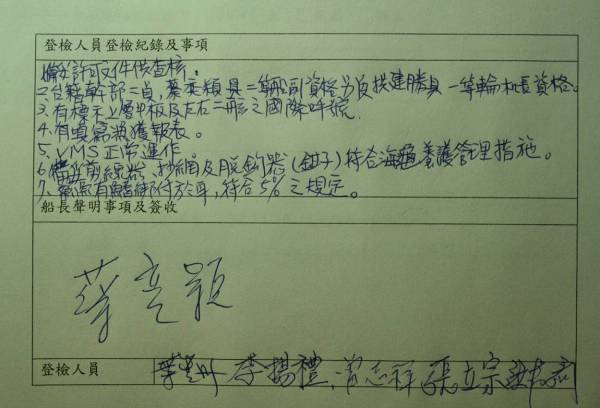 登檢人員登檢紀錄及事項
1.備妥許可文件供查核。
2.台籍幹部二員,葉奕穎具二等船副資格另員洪建勝具一等輪機長資格。
3.有標示上層甲板及左右二舷之國際呼號.
4.有填寫漁獲報表。
5.VMS正常運作。
6.備妥剪線器、抄網及脫鉤器(鉗子)符合海龜養護管理措施。
7.鯊魚有鰭綁附於身,符合5%之規定。
船長聲明事項及簽收
葉奕穎
登檢人員 李揚禮 曾志祥 張立宗